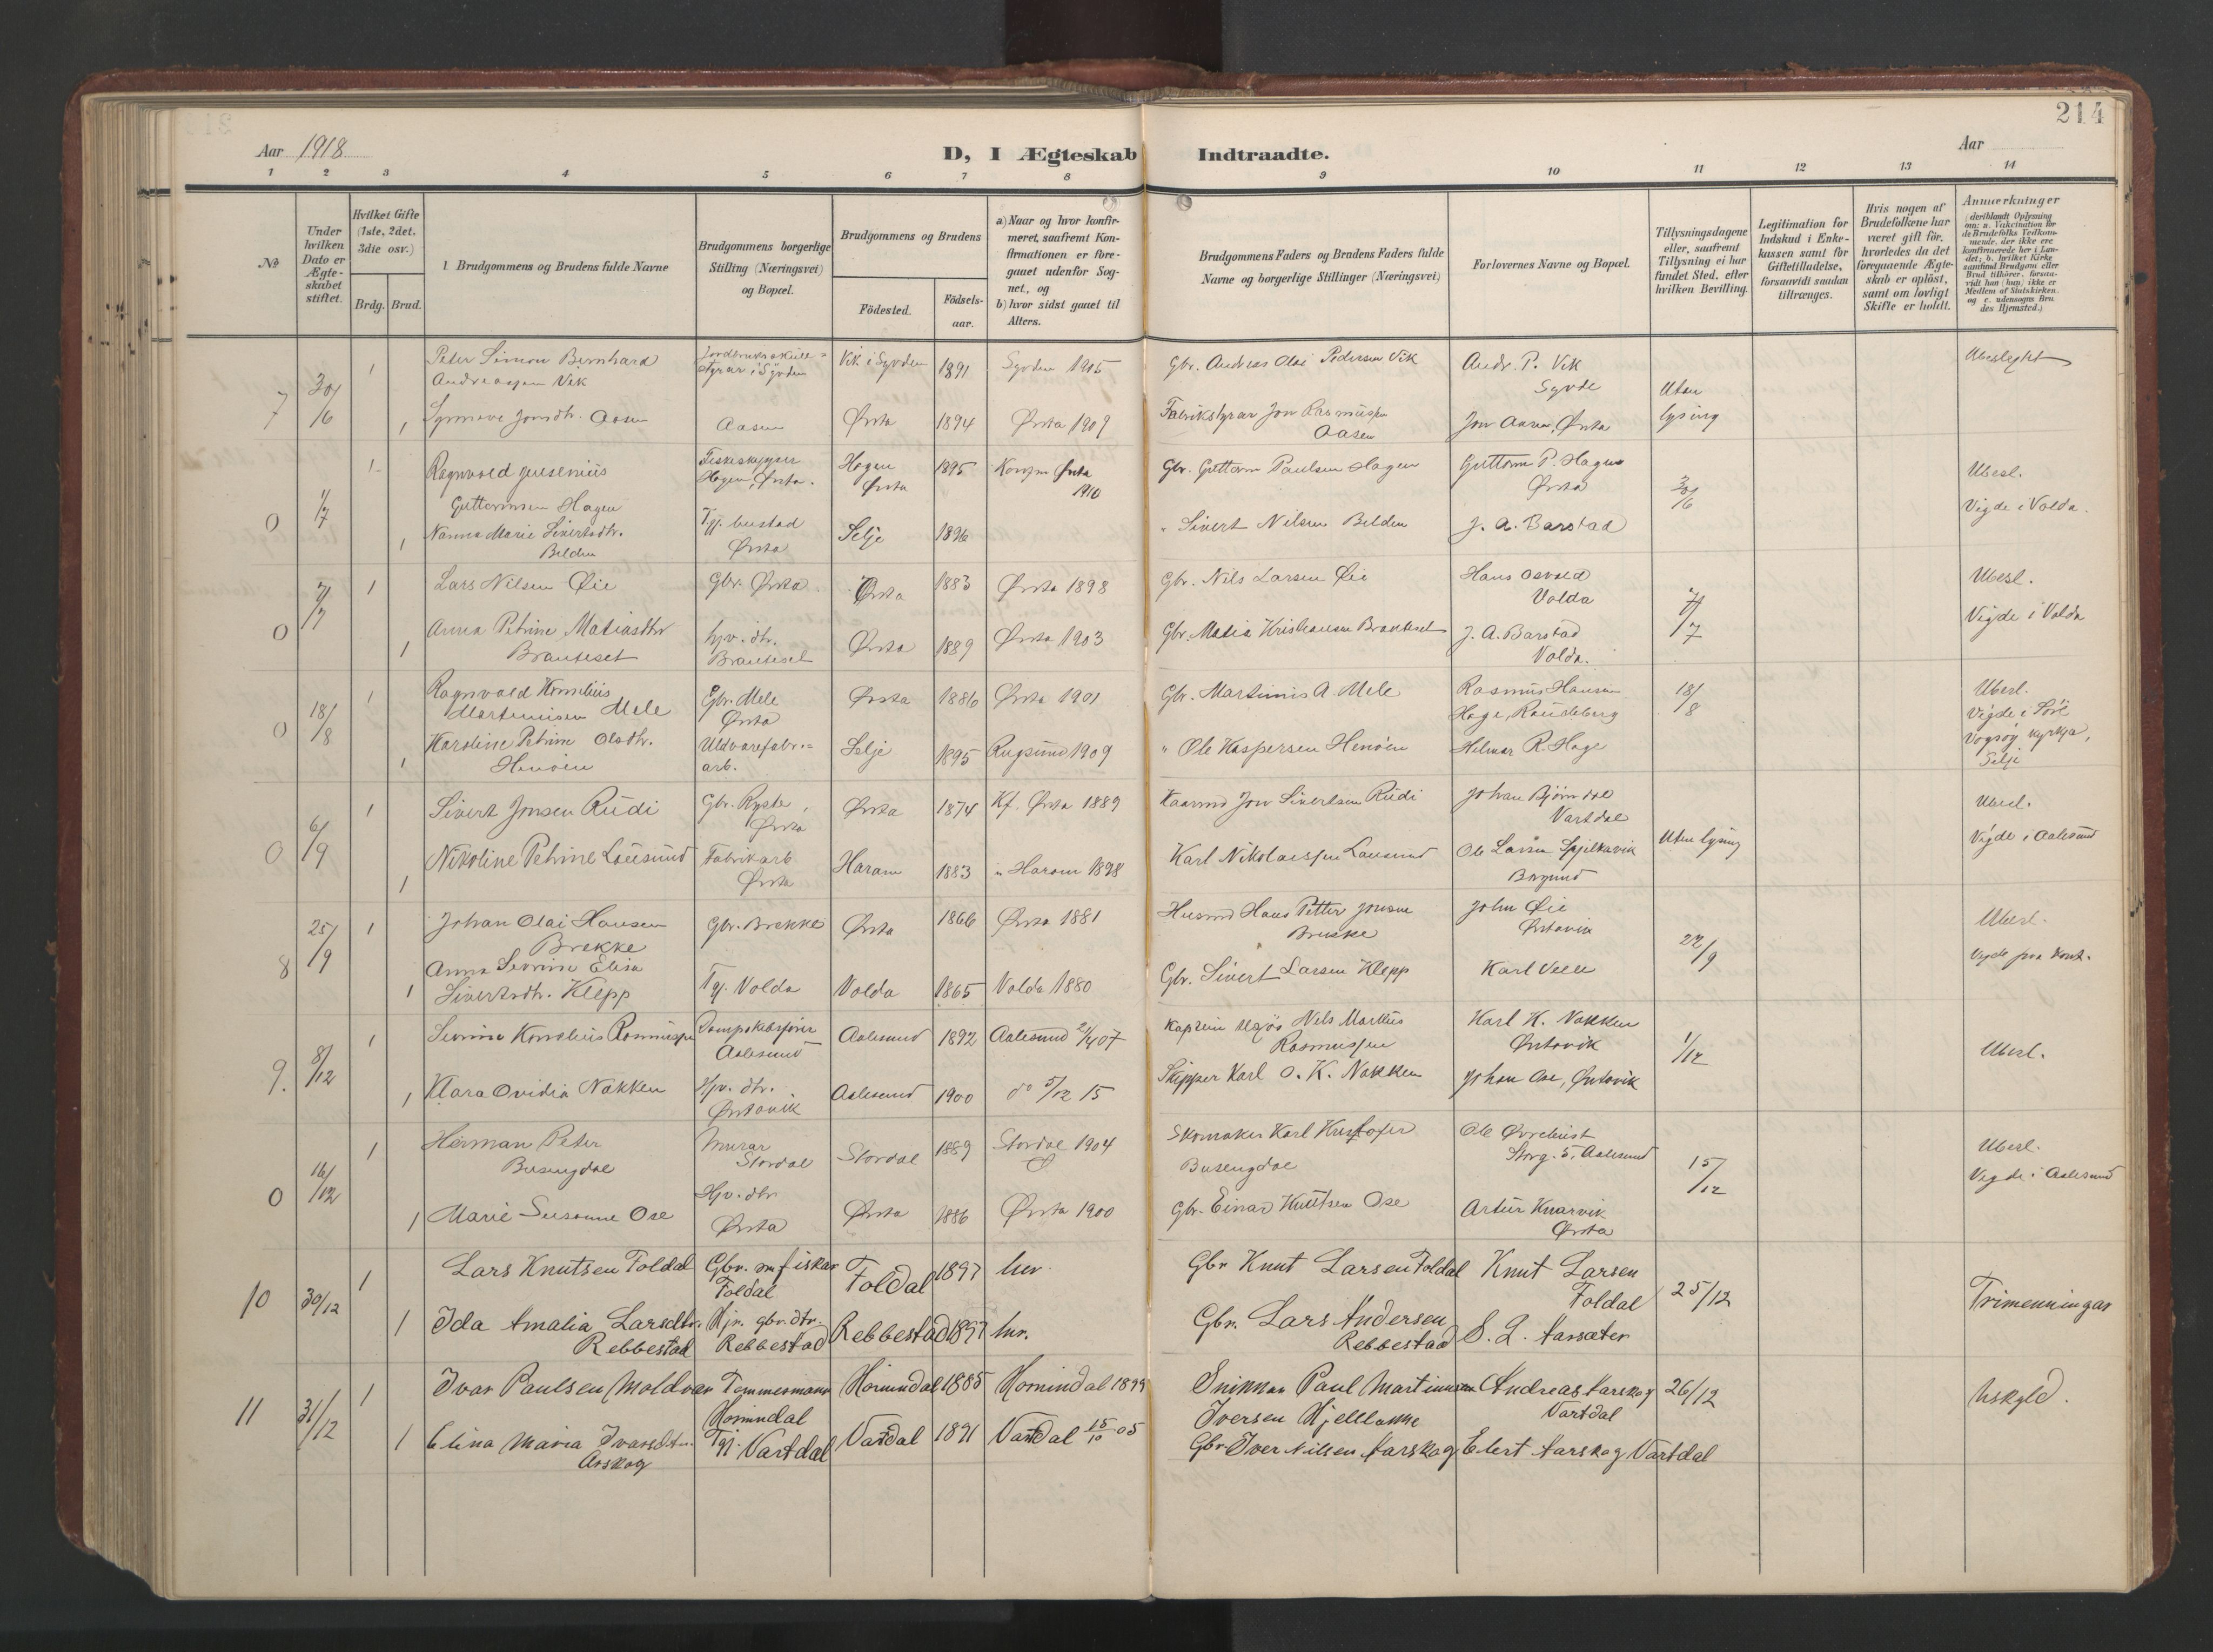 214
Aar 1918
D, I Ægteskab Indtraadte.
Aar
1 2 3 4 5 6 7 8 9 10 11 12 13 14
No
Under hvilken Dato er Ægteskabet stiftet.
Hvilket Gifte (1ste, 2det, 3die osv.)
Brdg. Brud.
1. Brudgommens og Brudens fulde Navne
Brudgommens borgerlige Stilling (Næringsvei) og Bopæl.
Brudgommens og Brudens
Födested.
Födsels-aar.
a) Naar og hvor konfirmeret, saafremt Konfirmationen er foregaaet udenfor Sognet, og
b) hvor sidst gaaet til Alters.
Brudgommens Faders og Brudens Faders fulde Navne og borgerlige Stillinger (Næringsvei)
Forlovernes Navne og Bopæl.
Tillysningsdagene eller, saafremt Tillysning ei har fundet Sted, efter hvilken Bevilling.
Legitimation for Indskud i Enkekassen samt for Giftetilladelse, forsaavidt saadan tiltrænges.
Hvis nogen af Brudefolkene har været gift för, hvorledes da det foregaaende Ægteskab er oplöst, samt om lovligt Skifte er holdt.
Anmerkninger
(deriblandt Oplysning om: a. Vakcination for de Brudefolks Vedkommende, der ikke ere konfirmerede her i Landet; b. hvilket Kirkesamfund Brudgom eller Brud tilhörer, forsaavidt han (hun) ikke er Medlem af Statskirken, og c. udensogns Brudes Hjemsted.)
7 30/6 1 Peter Simon Bernhard Andreassen Vik Vik i Syvden 1891 Syvden 1905 Gbr. Andreas Olai Pedersen Vik Andr. P. Vik Syvde Uten lysing Ubeslegtet
1 Synneve Jonsdtr. Aasen Aasen Ørsta 1894 Ørsta 1909 Fabrikstyrar Jon Rasmussen Aasen Jon Aasen, Ørsta
0 1/7 1 Ragnvald Julenius Guttormsen Hagen Fiskeskipper Hagen, Ørsta. Hagen Ørsta 1895 Ørsta 1910 Gbr. Guttorm Paulsen Hagen Guttorm P. Hagen Ørsta 30/6 Ubesl. Vigde i Volda.
1 Nanna Marie Sivertsdtr. Belden Tgj. bustad Ørsta Selje 1896 " Sivert Nilsen Belden J. A. Barstad
0 7/7 1 Lars Nilsen Øie Gbr. Ørsta Ørsta 1883 Ørsta 1898 Gbr. Nils Larsen Øie Hans Osvold Volda 7/7 Ubesl. Vigde i Volda
1 Anna Petrine Matiasdtr Brauteset hjv. dtr. Brauteset Ørsta 1889 Ørsta 1903 Gbr. Matias Kristiansen Brauteset J. A. Barstad Volda.
0 18/8 1 Ragnvald Kornelius Martinusen Mele Gbr. Mele Ørsta Ørsta 1886 Ørsta 1901 Gbr. Martinus A. Mele Rasmus Hansen Hage, Raudeberg 18/8 Ubesl. Vigde i Sörc Vogsøy kyrkja, Selje
1 Karoline Petrine Olsdtr. Henöen Uldvarefabr.=arb. Selje 1895 Rugsund 1909 " Ole Kaspersen Henöen Hilmar R. Hage
0 6/9 1 Sivert Jonsen Rudi Gbr. Ryste, Ørsta Ørsta 1874 Kf. Ørsta 1889 Kaarmd Jon Sivertsen Rudi Johan Bjørndal Vartdal Uten lysing Ubesl. Vigde i Aalesund
1 Nikoline Petrine Lausund Fabrikarb Ørsta Haram 1883 " Haram 1898 Karl Nikolaissen Lausund Ole Larsen Spjelkavik Borgund
8 25/9 1 Johan Olai Hansen Brekke Gbr. Brekke Ørsta 1866 Ørsta 1881 Husmd Hans Petter Jonsen Brekke John Øie Ørstavik 22/9 Ubesl. Vigde paa kont.
1 Anna Sevrine Elisa Sivertsdtr. Klepp Tgj. Volda Volda 1865 Volda 1880 Gbr. Sivert Larsen Klepp Karl Velle
9. 8/12 1 Sevrin Kornelius Rasmussen Dampskibsfører Aalesund Aalesund 1892 Aalesund 21/4 07 Kaptein Nels Markus Rasmussen Karl K. Nakken Ørstavik 1/12 Ubesl.
1 Klara Ovidia Nakken Hjv. dtr. Ørstavik Aalesund 1900 do 5/12 15 Skipper Karl O. K. Nakken Johan Ose, Ørstavik
0 16/12 1 Herman Peter Busengdal Murar Stordal Stordal 1889 Stordal 1904 Skomaker Karl Kristofer Busengdal Ole Øvrelid Storg. 5, Aalesund 15/12 Ubesl. Vigde i Aalesund
1 Marie Susanne Ose Hjv. dtr Ørsta Ørsta 1886 Ørsta 1900 Gbr. Einar Knutsen Ose Artur Knarvik Ørsta
10 30/12 1 Lars Knutsen Foldal Gbr. sn fiskar Foldal Foldal 1897 her. Gbr Knut Larsen Foldal Knut Larsen Foldal 25/12 Trimenningar
1 Ida Amalia Larsdtr. Rebbestad Hjv. gbr. dtr. Rebbestad Rebbestad 1897 her. Gbr. Lars Andersen Rebbestad S. L. Aarsæter
11 31/12 1 Ivar Paulsen Moldvær Tømmermann Hornindal Hornindal 1885 Hornindal 1899 Snikkar Paul Martinusen Iversen Hjellbakke Andreas Aarskog Vartdal 26/12 Uskyld.
1 Elina Maria Ivarsdtr. Årskog Tgj. Vartdal Vartdal 1891 Vartdal 15/10 05 Gbr Iver Nilsen Aarskog Elert Aarskog Vartdal